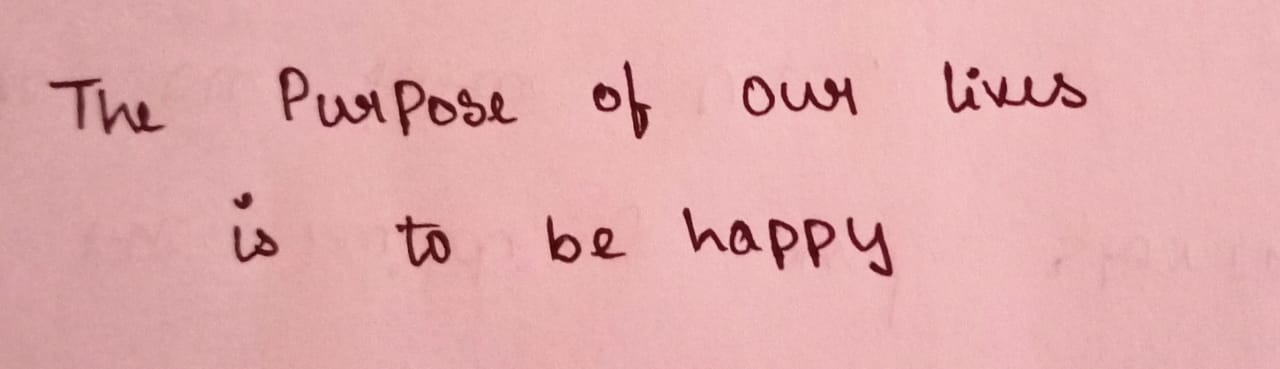 The Purpose of our lives
is to be happy